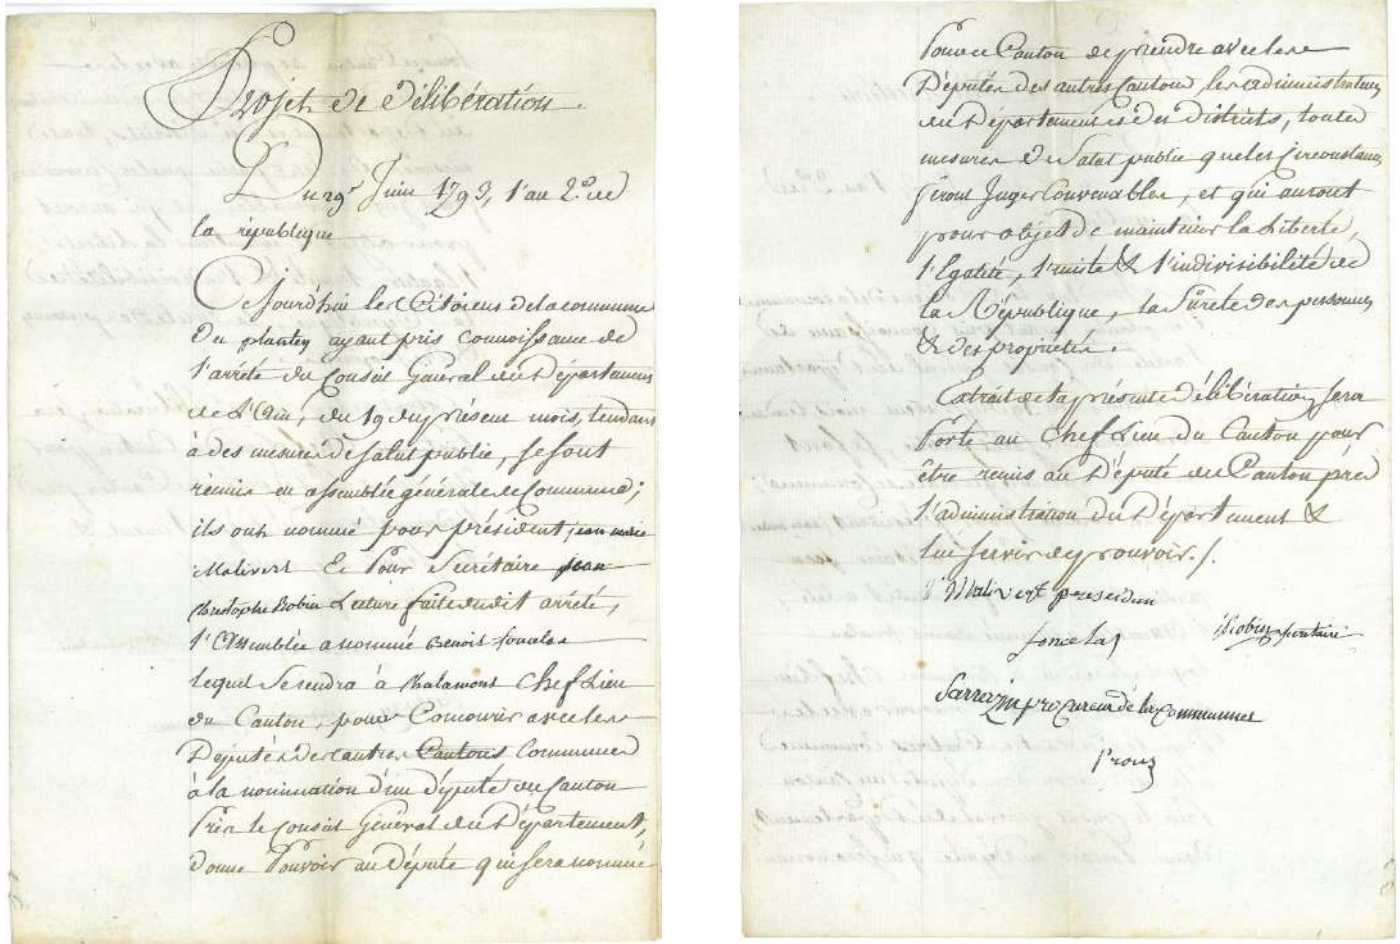 Projet de Délibération.
Du 29 Juin 1793, l'an 2.e de
la république
Cejourd'hui les Citoiens de la commune
du plantey ayant pris connoissance de
l'arrêté du Conseil Général du Département
de l'Ain, du 19 du présent mois, tendant
à des mesures de salut public, se sont
réunis en assemblée générale de Commune;
ils ont nommé pour président jean marie
Malivert Et Pour Secrétaire jean
christophe Robin Lecture faite dudit arrêté,
l'Assemblée a nommé Benoit foncelas
lequel se rendra à chalamont Chef Lieu
du Canton, pour Concourir avec les
Députés des autres Cantons Communes
à la nomination d'un député du Canton
Près le Conseil Général du Département,
donne Pouvoir au Député qui sera nommé
Pour ce Canton de prendre avec les
Députés des autres Cantons, les administrateurs
du Département et des districts, toutes
mesures de Salut public que les Circonstances
feront Juger Convenables, et qui auront
pour objet de maintenir la Liberté,
l'Egalité, l'unité & l'indivisibilité de
la République, la Sûreté des personnes
& des propriétés.
Extrait de la présente Délibération, sera
Porté au Chef Lieu du Canton pour
être remis au Député du Canton près
l'administration du Département &
lui servir de pouvoir./.
Malivert president
foncelas
Robin secretaire
Sarrazin procureur de la Communes